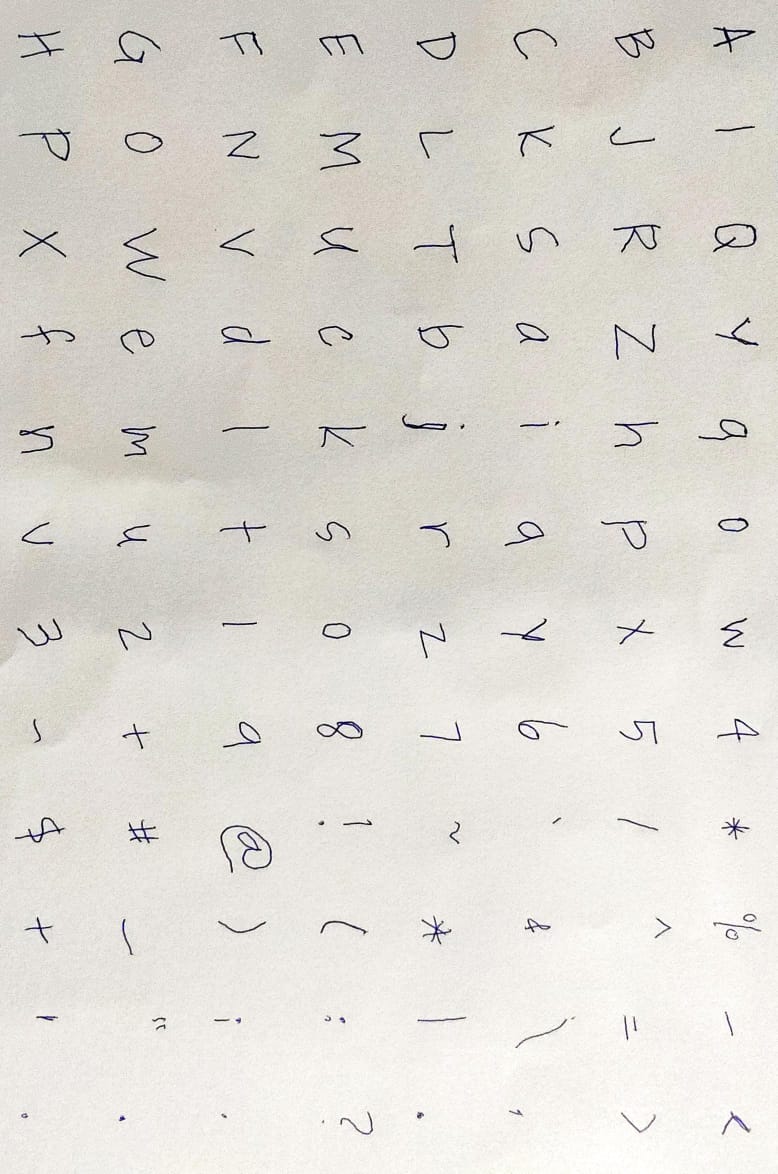 A I Q Y g o w 4 * % - <
B J R Z h p x 5 / ^ = >
C K S a i q y 6 ` & \ ,
D L T b j r z 7 ~ * | .
E M U c k s 0 8 ! ( : ?
F N V d l t 1 9 @ ) ; .
G O W e m u 2 + # _ " .
H P X f n v 3 - $ + ' .